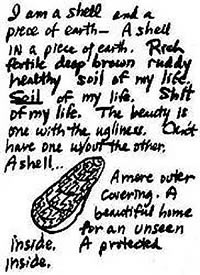 I am a shell and a
piece of earth — A shell
in a piece of earth. Rich
fertile deep brown ruddy
healthy soil of my life.
Soil of my life. Shit
of my life. The beauty is
one with the ugliness. Can't
have one w/out the other.
A shell...
A mere outer
covering. A
beautiful home
for an unseen
inside. A protected
inside.